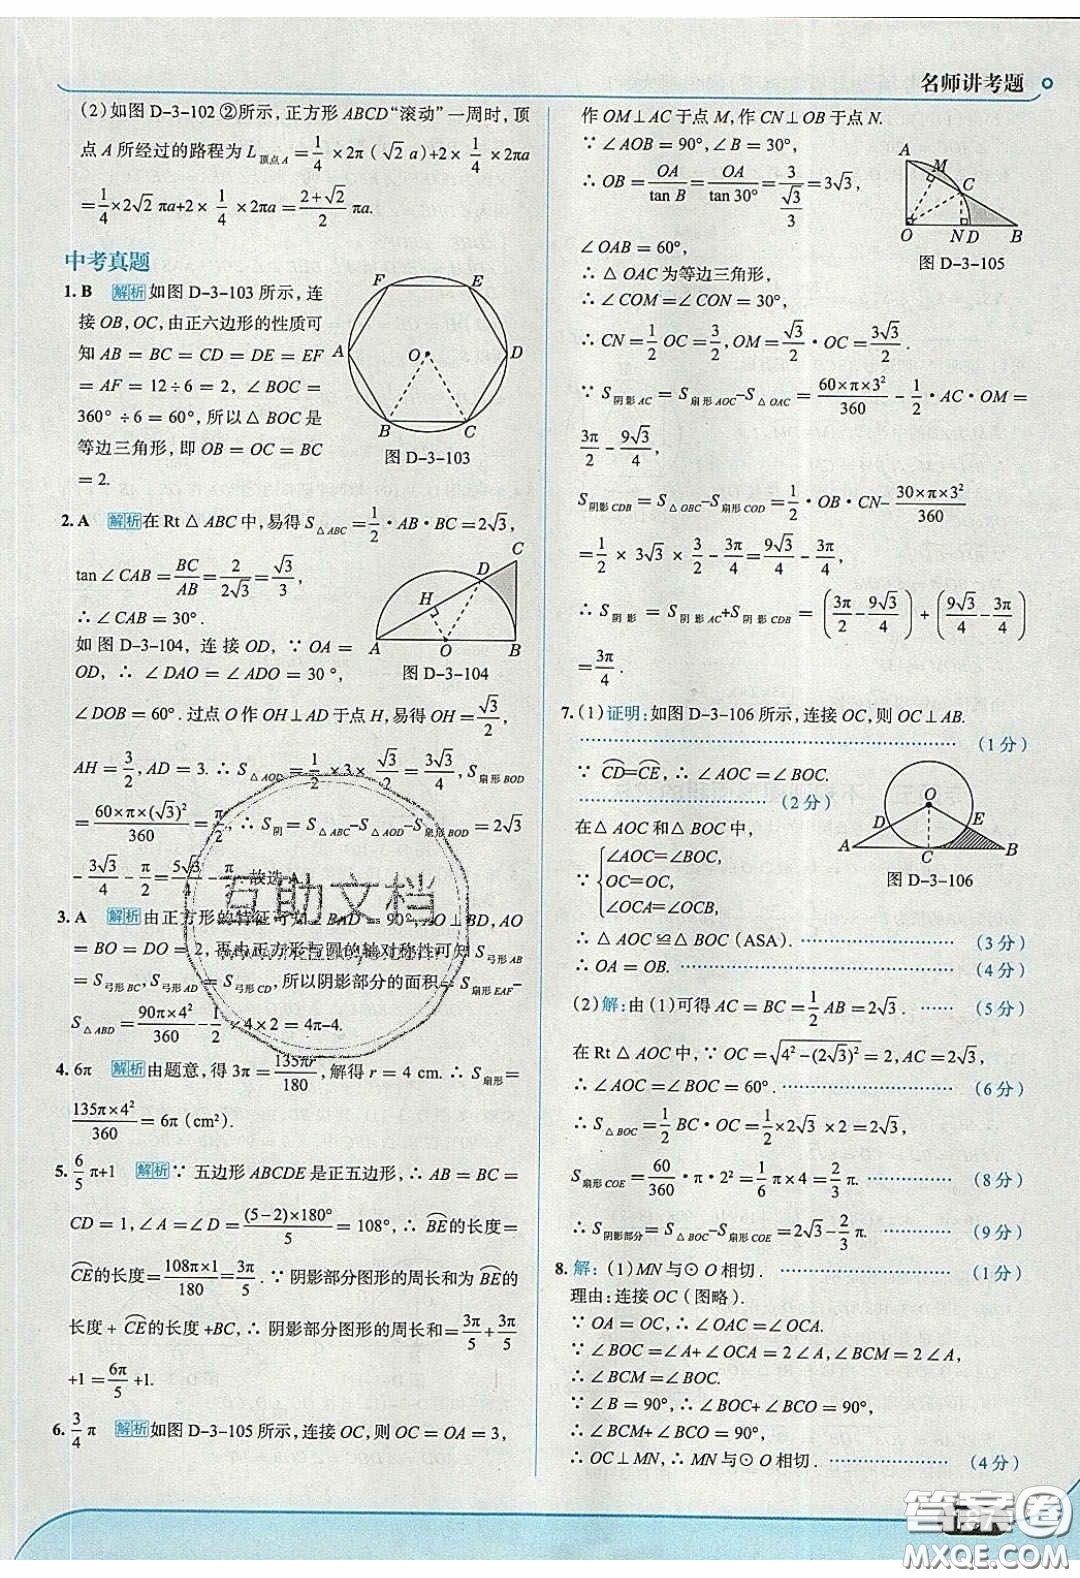 名师讲考题
(2)如图 D-3-102 ②所示，正方形 ABCD“滚动”一周时，顶
点 A 所经过的路程为 L顶点A = 1/4 × 2π (√2 a)+2× 1/4 ×2πa
= 1/4 ×2√2 πa+2× 1/4 ×2πa = (2+√2)/2 πa.
中考真题
1. B 解析 如图 D-3-103 所示，连
接 OB，OC，由正六边形的性质可
知 AB = BC = CD = DE = EF
= AF = 12÷6 = 2，∠BOC =
360°÷6 = 60°，所以△BOC 是
等边三角形，即 OB = OC = BC
= 2.
F E A O D B C
图 D-3-103
2. A 解析 在 Rt△ABC 中，易得 S△ABC = 1/2 ·AB·BC = 2√3，
tan∠CAB = BC/AB = 2/(2√3) = √3/3，
∴∠CAB = 30°.
如图 D-3-104，连接 OD，∵ OA =
OD，∴∠DAO = ∠ADO = 30°，
C D H A O B
图 D-3-104
∠DOB = 60°. 过点 O 作 OH⊥AD 于点 H，易得 OH = √3/2，
AH = 3/2，AD = 3. ∴ S△AOD = 1/2 ×3× √3/2 = 3√3/4，S扇形BOD
= 60×π×(√3)²/360 = π/2，∴ S阴 = S△ABC-S△AOD-S扇形BOD = 2√3
- 3√3/4 - π/2 = 5√3/4 - π/2. 故选 A.
3. A 解析 由正方形的特征可知∠BAD = 90°，AO⊥BD，AO
= BO = DO = 2，再由正方形与圆的轴对称性可知 S弓形AB
= S弓形BC，S弓形AD = S弓形CD，所以阴影部分的面积 = S扇形EAF-
S△ABD = 90π×4²/360 - 1/2 ×4×2 = 4π-4.
4. 6π 解析 由题意，得 3π = 135πr/180，解得 r = 4 cm. ∴ S扇形 =
135π×4²/360 = 6π (cm²).
5. 6/5 π+1 解析 ∵ 五边形 ABCDE 是正五边形，∴ AB = BC =
CD = 1，∠A = ∠D = (5-2)×180°/5 = 108°，∴ BE⌒的长度 =
CE⌒的长度 = 108π×1/180 = 3π/5. ∵ 阴影部分图形的周长和为 BE⌒的
长度 + CE⌒的长度 +BC，∴ 阴影部分图形的周长和 = 3π/5 + 3π/5
+1 = 6π/5 +1.
6. 3/4 π 解析 如图 D-3-105 所示，连接 OC，则 OC = OA = 3，
作 OM⊥AC 于点 M，作 CN⊥OB 于点 N.
∵∠AOB = 90°，∠B = 30°，
∴ OB = OA/tan B = OA/tan 30° = 3/(√3/3) = 3√3，
∠OAB = 60°，
∴△OAC 为等边三角形，
A M C O N D B
图 D-3-105
∴∠COM = ∠CON = 30°，
∴ CN = 1/2 OC = 3/2，OM = √3/2 ·OC = 3√3/2.
∵ S阴影AC = S扇形AOC-S△OAC = 60×π×3²/360 - 1/2 ·AC·OM =
3π/2 - 9√3/4，
S阴影CDB = S△OBC-S扇形COD = 1/2 ·OB·CN- 30×π×3²/360
= 1/2 × 3√3 × 3/2 - 3π/4 = 9√3/4 - 3π/4，
∴ S阴影 = S阴影AC+S阴影CDB = (3π/2 - 9√3/4) + (9√3/4 - 3π/4)
= 3π/4.
7. (1)证明：如图 D-3-106 所示，连接 OC，则 OC⊥AB.
(1 分)
∵ CD⌒=CE⌒，∴∠AOC = ∠BOC.
(2 分)
在△AOC 和△BOC 中，
∵ { ∠AOC=∠BOC，
OC=OC，
∠OCA=∠OCB，
O D E A C B
图 D-3-106
∴△AOC≌△BOC (ASA). (3 分)
∴ OA = OB. (4 分)
(2)解：由(1)可得 AC = BC = 1/2 AB = 2√3. (5 分)
在 Rt△AOC 中，∵ OC = √(4²-(2√3)²) = 2，AC = 2√3，
∴∠AOC = ∠BOC = 60°. (6 分)
∴ S△BOC = 1/2 BC·OC = 1/2 ×2√3 ×2 = 2√3，
S扇形COE = 60/360 ·π·2² = 1/6 π×4 = 2/3 π. (8 分)
∴ S阴影部分 = S△BOC-S扇形COE = 2√3 - 2/3 π. (9 分)
8. 解：(1)MN 与⊙O 相切. (1 分)
理由：连接 OC(图略).
∵ OA = OC，∴∠OAC = ∠OCA.
∵∠BOC = ∠A+∠OCA = 2∠A，∠BCM = 2∠A，
∴∠BCM = ∠BOC.
∵∠B = 90°，∴∠BOC+∠BCO = 90°，
∴∠BCM+∠BCO = 90°，
∴ OC⊥MN，∴ MN 与⊙O 相切. (4 分)
互助文档
答案圈
MXQE.COM